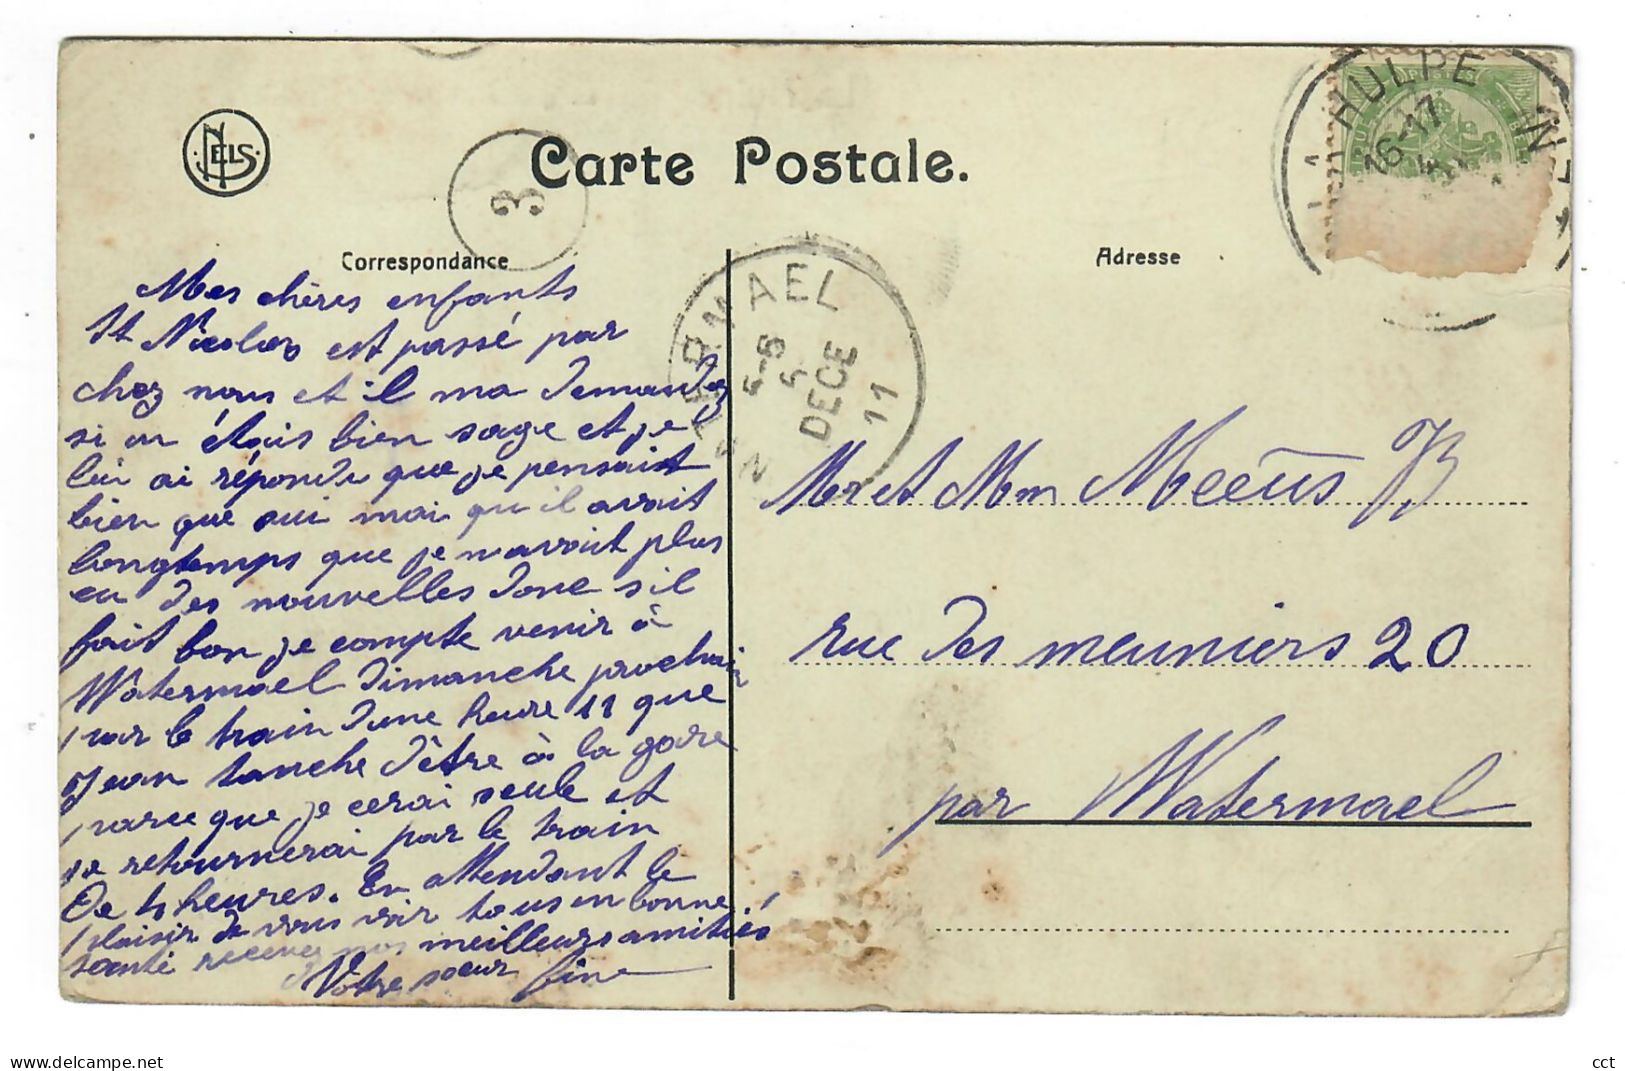 NELS
Carte Postale.
3
LA HULPE
16-17
Correspondance
Adresse
WATERMAEL
5-6
5
DECE
11
Mes chères enfants
St Nicolas est passé par
chez nous et il ma demandez
si on étais bien sage et je
lui ai répondu que je pensait
bien que oui mai qu il avait
longtemps que je n avait plus
eu des nouvelles donc s il
fait bon je compte venir à
Watermael dimanche prochain
par le train d une heure 11 que
Jean tanche d'être à la gare
parce que je cerai seule et
je retournerai par le train
de 4 heures. En attendant le
plaisir de vous voir tous en bonne
santé recevez nos meilleurs amitiés
Votre sœur fine
Mr et Mm Meeùs JB
rue des meuniers 20
par Watermael
www.delcampe.net
cct